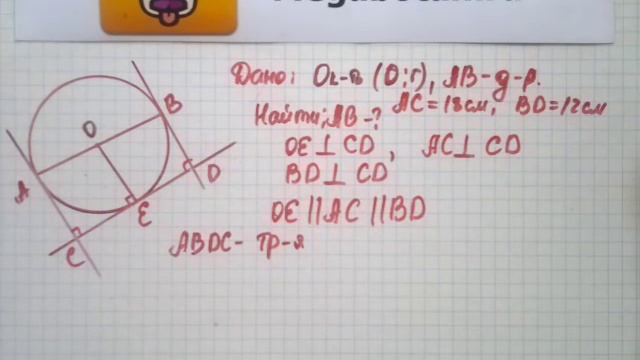 Дано: Ок-ть (O; r), AB-д-р.
AC=18см, BD=12см
Найти: AB-?
OE⊥CD, AC⊥CD
BD⊥CD
OE||AC||BD
ABDC- тр-я
A
B
O
C
D
E